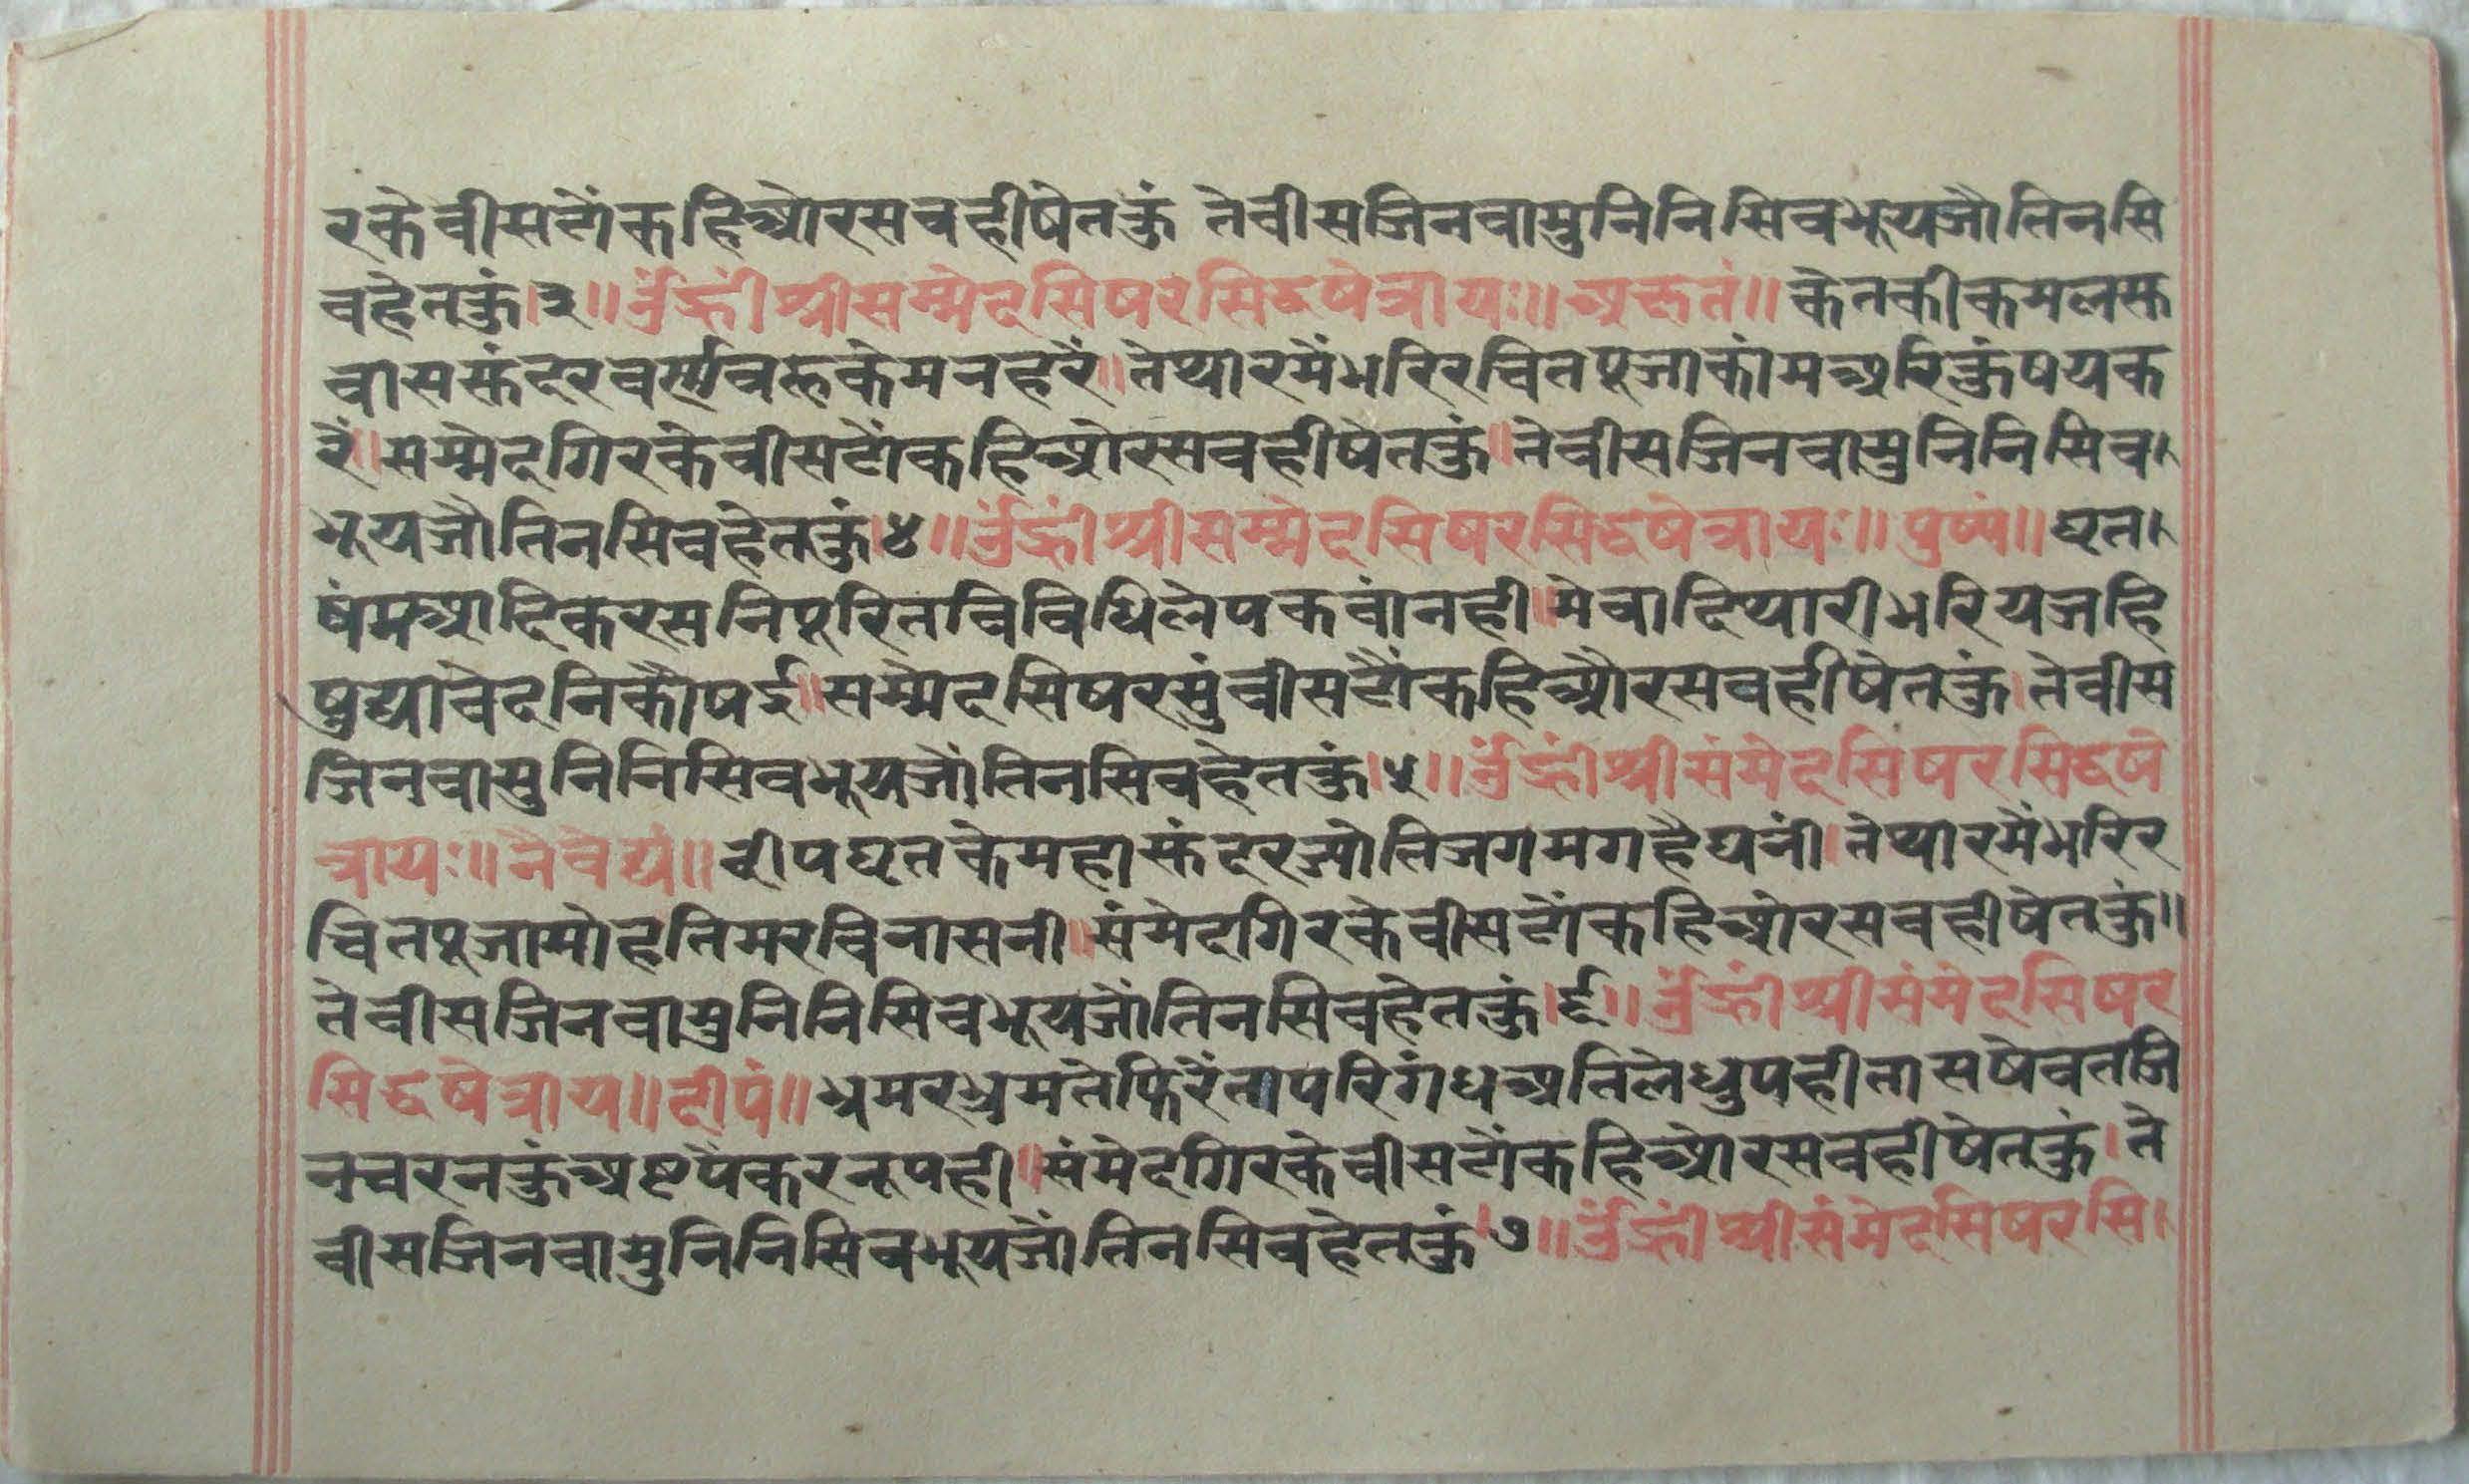 रकेवीसटोंकहिओरसवहीषेतकुं तेवीसजिनवामुनिनिसिवभूयजौतिनसि
वहेतकुं।३॥ॐह्रींश्रीसम्मेदसिषरसिद्धषेत्रायः॥अक्षतं॥केतकीकमलसु
वाससुंदरवर्णवहुकेमनहरैं॥तेथारमैंभरिरचितपूजाकांमअरिकुंषयक
रैं॥सम्मेदगिरकेवीसटोंकहिओरसवहीषेतकुं॥तेवीसजिनवामुनिनिसिव।
भूयजौतिनसिवहेतकुं।४॥ॐह्रींश्रीसम्मेदसिषरसिद्धषेत्रायः॥पुष्पं॥घृत।
षंमआदिकरसनिपूरितविविधिलेपकवांनही॥मेवादिथारीभरियजहि
षुद्यावेदनिकौषई॥सम्मेदसिषरसुंवीसटौंकहिऔरसवहीषेतकुं।तेवीस
जिनवामुनिनिसिवभूयजौंतिनसिवहेतकुं।५॥ॐह्रींश्रीसंमेदसिषरसिद्धषे
त्रायः॥नैवेद्यं॥दीपघृतकेमहासुंदरजोतिजगमगहैघनीं।तेथारमैंभरिर
चितपूजामोहतिमरविनासनी॥संमेदगिरकेवीसटोंकहिओरसवहीषेतकुं॥
तेवीसजिनवामुनिनिसिवभूयजौंतिनसिवहेतकुं।६॥ॐह्रींश्रीसंमेदसिषर
सिद्धषेत्राय॥दीपं॥भ्रमरभ्रमतेफिरैंतापरिगंधअतिलेधुपहीतासषेवतजि
नचरनकुंअष्टपैकरनूपही॥संमेदगिरकेवीसटोंकहिओरसवहीषेतकुं।ते
वीसजिनवामुनिनिसिवभूयजौंतिनसिवहेतकुं।७॥ॐह्रींश्रीसंमेदसिषरसि।